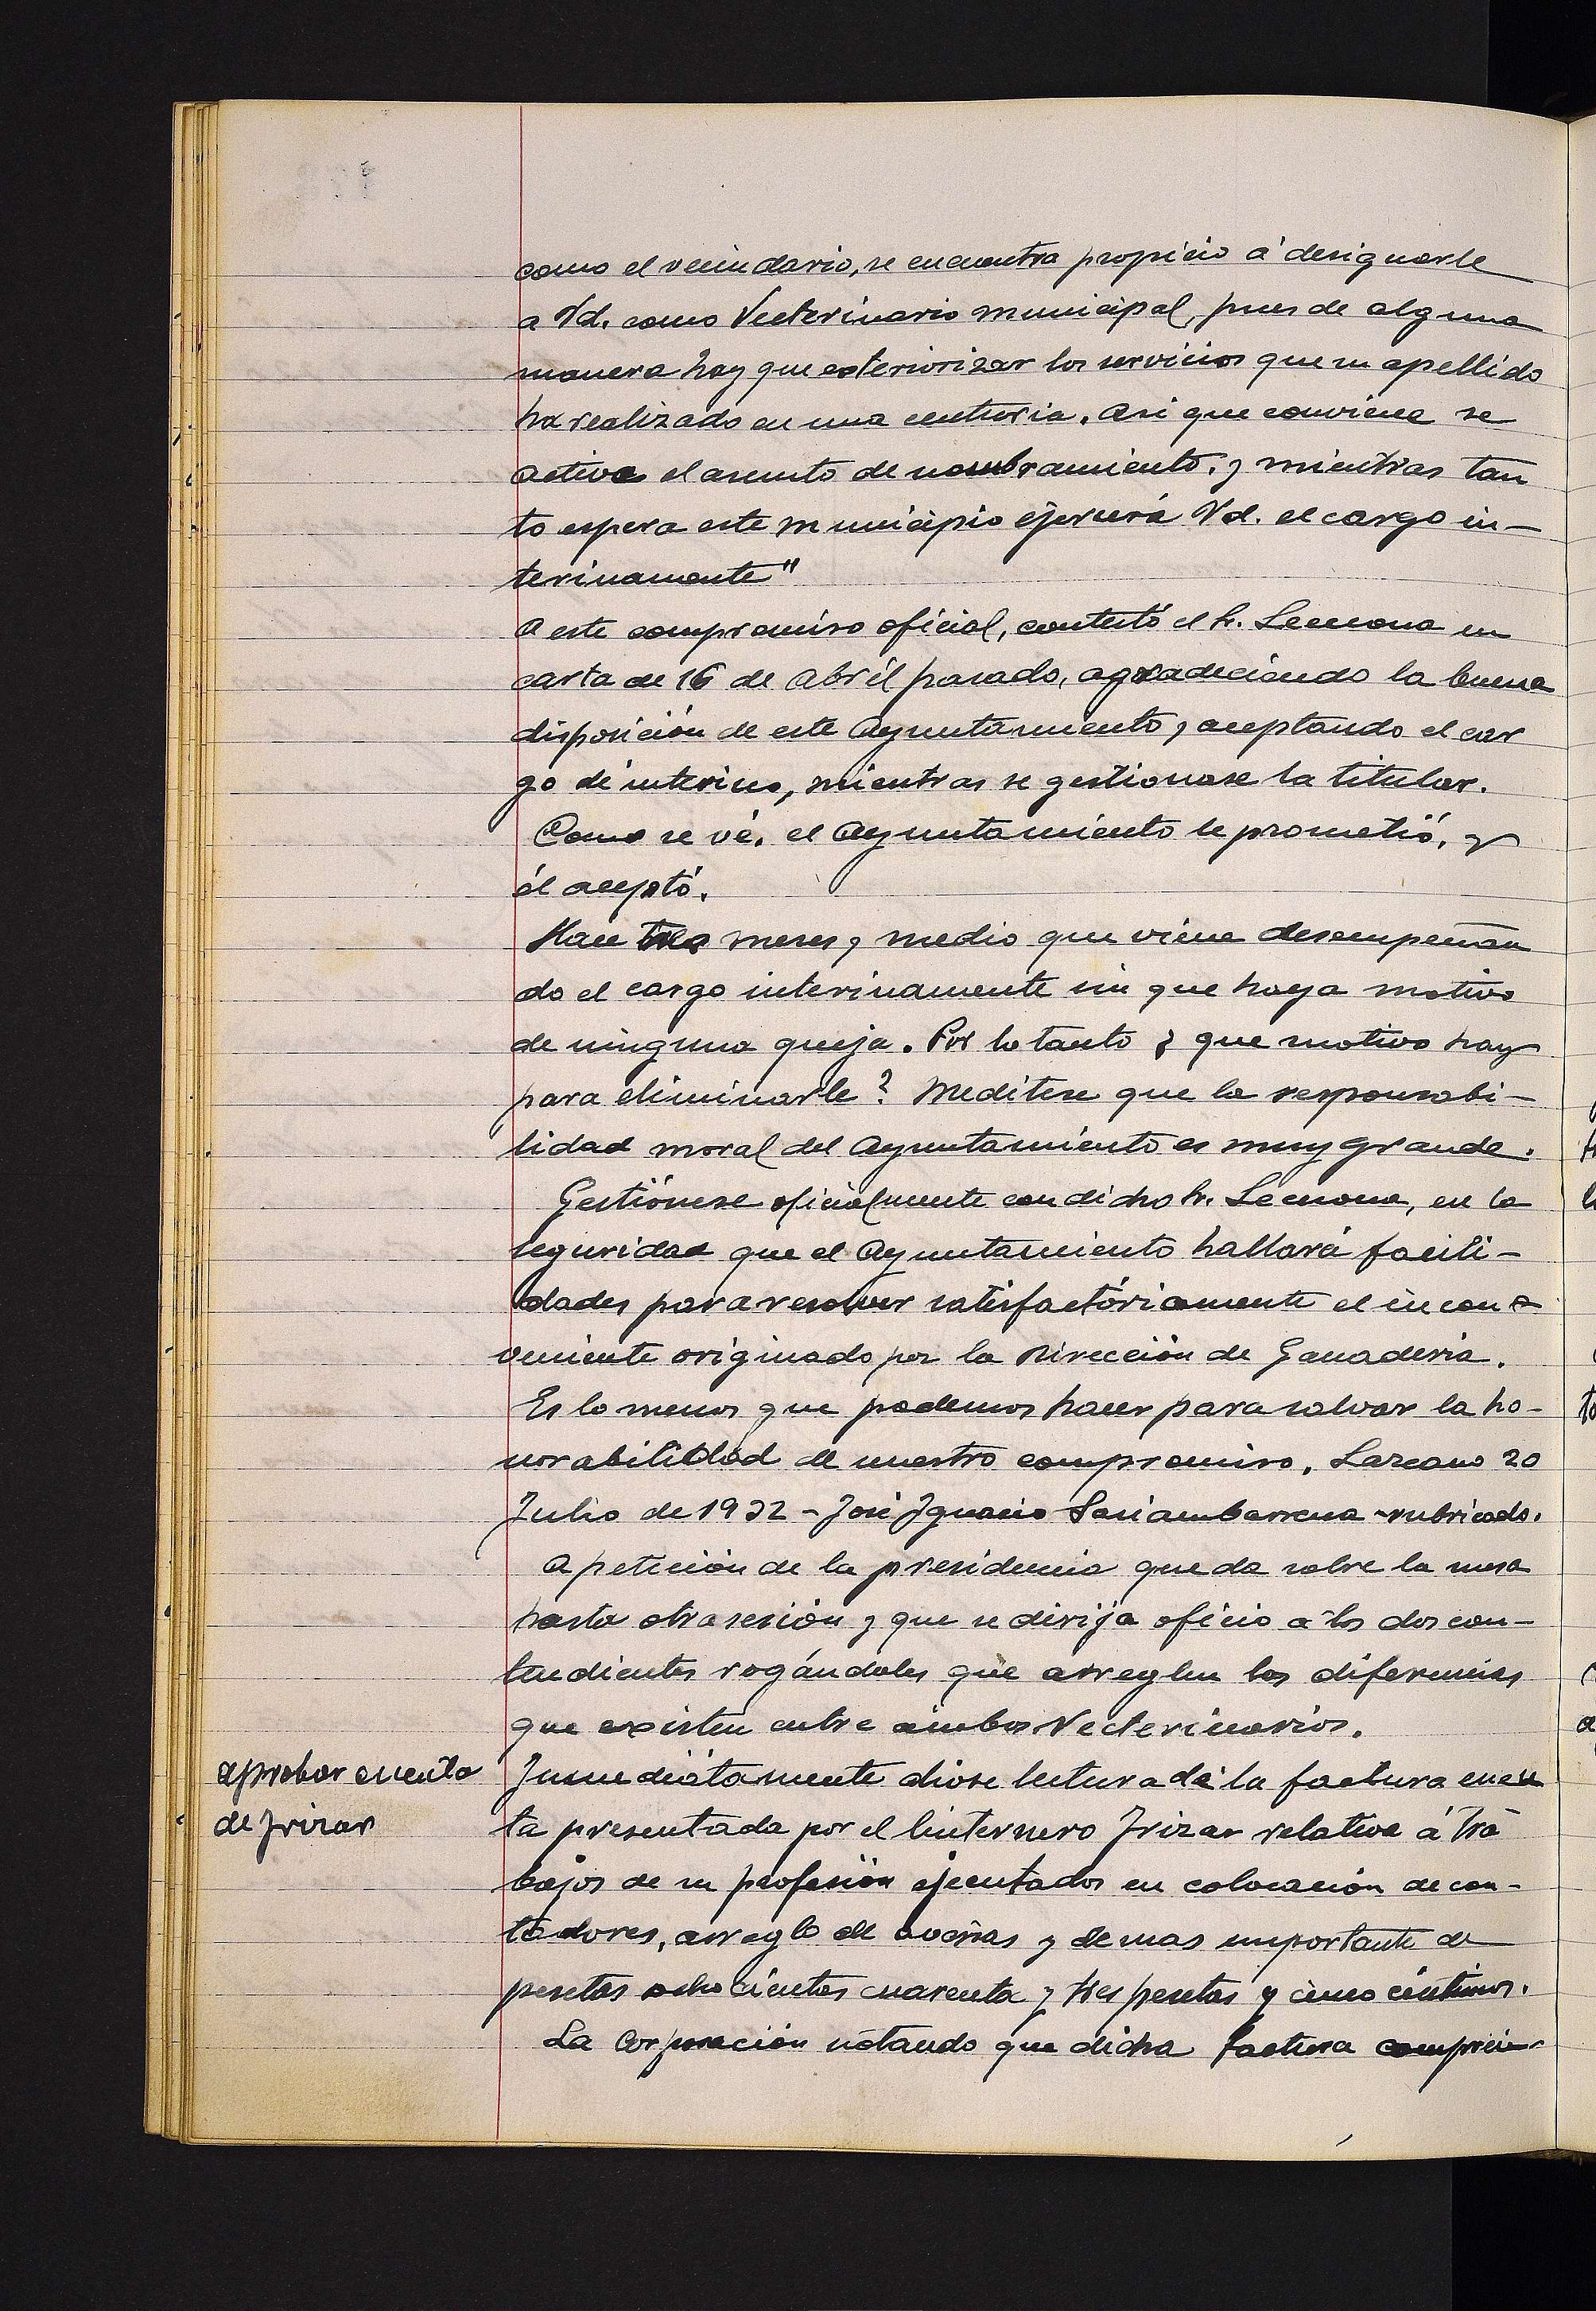 como el vecindario, se encuentra propicio á designarle
a Vd. como Vecterinario municipal, pues de alguna
manera hay que exteriorizar los servicios que su apellido
ha realizado en una centuria. Asi que conviene se
active el asunto de nombramiento. y mientras tan
to espera este municipio ejercerá Vd. el cargo in-
terinamente"
A este compromiso oficial, contestó el Sr. Lecuona en
carta de 16 de Abril pasado, agradeciendo la buena
disposición de este Ayuntamiento y aceptando el car
go de interino, mientras se gestionase la titular.
Como se vé. el Ayuntamiento le prometió, y
él aceptó.
Hace tres meses y medio que viene desempeñan
do el cargo interinamente sin que haya motivo
de ninguna queja. Por lo tanto ¿ que motivo hay
para eliminarle? Meditese que la responsabi-
lidad moral del Ayuntamiento es muy grande.
Gestiónese oficialmente con dicho Sr. Lecuona, en la
seguridad que el Ayuntamiento hallará facili-
dades para resolver satisfactóriamente el incon
veniente originado por la Dirección de Ganaderia.
Es lo menos que podemos hacer para salvar la ho-
norabilidad de nuestro compromiso. Lazcano 20
Julio de 1932 - José Ignacio Sasiambarrena - rubricado.
A petición de la presidencia queda sobre la mesa
hasta otra sesión y que se dirija oficio a los dos con-
tendientes rogándoles que arreglen las diferencias
que existen entre ambos Vecterinarios.
aprobar cuenta
de Irizar
Inmediatamente diose lectura de la factura cuen
ta presentada por el linternero Irizar relativa á tra
bajos de su profesión ejecutados en colocación de con-
tadores, arreglo de averias y demas importante de
pesetas ochocientas cuarenta y tres pesetas y cinco céntimos.
La Corporación notando que dicha factura compren-